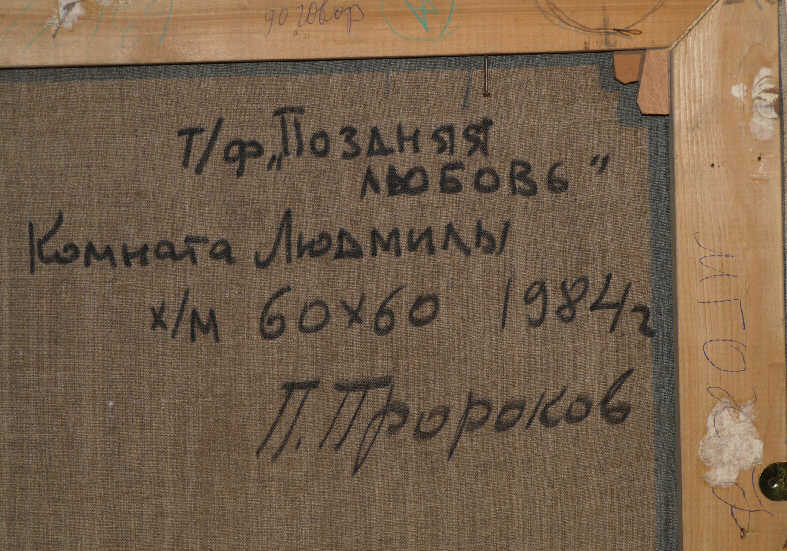 договор
т/ф „Поздняя
любовь"
Комната Людмилы
х/м 60х60 1984г
П. Пророков